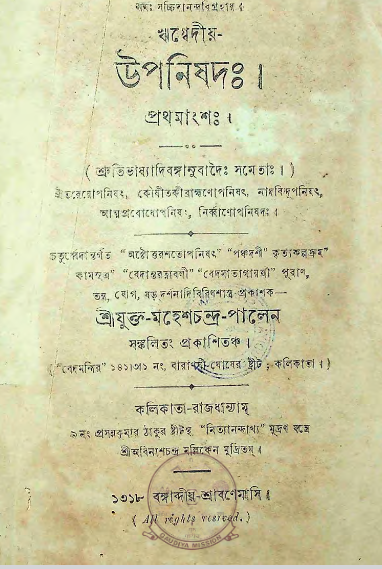 ঋগ্বেদীয়-
উপনিষদঃ।
প্রথমাংশঃ।
( শ্রুতিভাষ্যাদিবঙ্গানুবাদৈঃ সমেতাঃ। )
ঐতরেয়োপনিষৎ, কৌষীতকীব্রাহ্মণোপনিষৎ, নাদবিন্দূপনিষৎ,
আত্মপ্রবোধোপনিষৎ, নির্ব্বাণোপনিষদঃ।
চতুর্ব্বেদান্তর্গত "অষ্টোত্তরশতোপনিষৎ" "পঞ্চদশী" কৃত্যকল্পদ্রুম"
কামসূত্র" "বেদান্তরত্নাবলী" "বেদমাতাগায়ত্রী" পুরাণ,
তন্ত্র, যোগ, ষড়্দর্শনাদিবিবিধশাস্ত্র-প্রকাশক—
শ্রীযুক্ত-মহেশচন্দ্র-পালেন
সঙ্কলিতং প্রকাশিতঞ্চ।
("বেদমন্দির" ১৪১।৩।১ নং, বারাণসী-ঘোষের ষ্ট্রীট; কলিকাতা।)
কলিকাতা-রাজধান্যাম্
৯নং প্রসন্নকুমার ঠাকুর ষ্ট্রীটস্থ "নিত্যানন্দাখ্য" মুদ্রণ যন্ত্রে
শ্রীঅবিনাশচন্দ্র মল্লিকেন মুদ্রিতম্।
১৩১৮ বঙ্গাব্দীয়-শ্রাবণেমাসি।
( All rights reserved. )
GAUDIYA MISSION